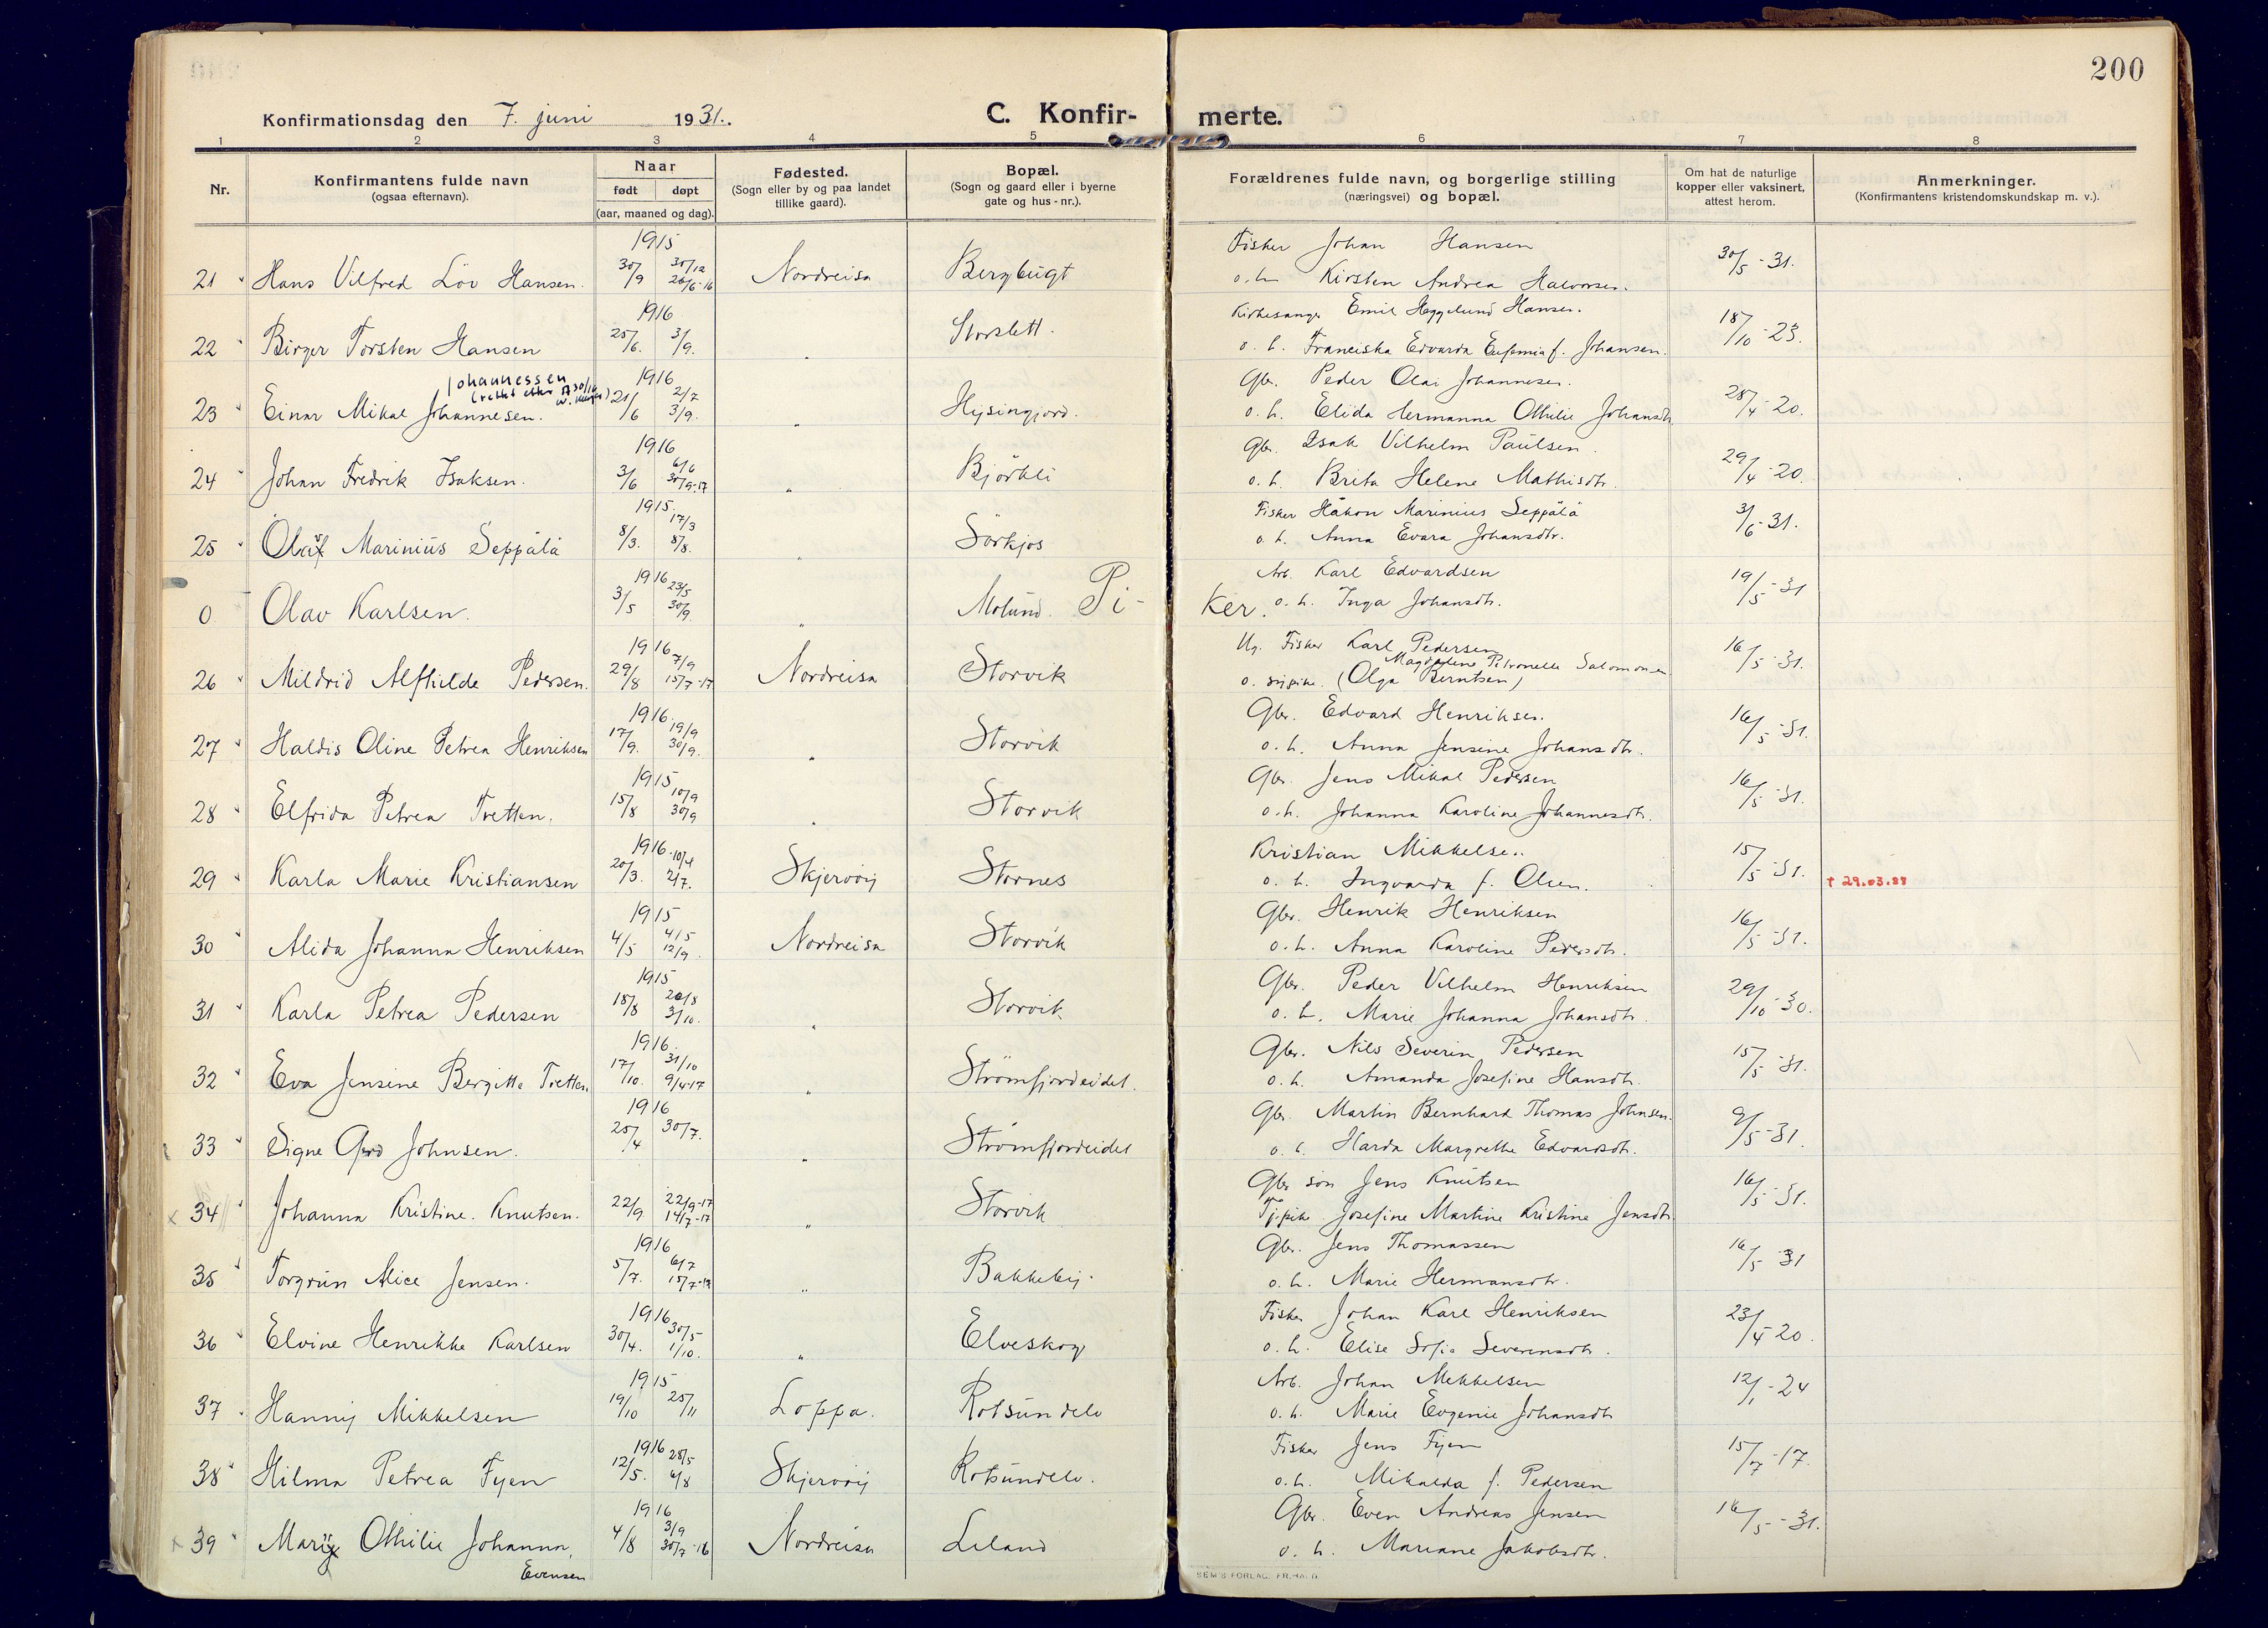 200
Konfirmationsdag den 7. juni 1931. C. Konfir- merte.
1 2 3 4 5 6 7 8
Nr. Konfirmantens fulde navn (ogsaa efternavn). Naar født døpt (aar, maaned og dag). Fødested. (Sogn eller by og paa landet tillike gaard). Bopæl. (Sogn og gaard eller i byerne gate og hus-nr.). Forældrenes fulde navn, og borgerlige stilling (næringsvei) og bopæl. Om hat de naturlige kopper eller vaksinert, attest herom. Anmerkninger. (Konfirmantens kristendomskundskap m. v.).
1915 Fisker Johan Hansen
21 Hans Vilfred Löv Hansen. 30/9 30/12 26/6-16 Nordreisa Bergbugt o. h. Kirsten Andrea Halvorsen. 30/5-31.
1916 Kirkesanger Emil Heggelund Hansen.
22 Birger Torsten Hansen 25/6. 3/9. " Storslett. o. h. Franciska Edvarda Eufemia f. Johansen. 18/10-23.
Johannessen 1916 Gbr. Peder Olai Johannesen.
23 Einar Mikal Johannesen. 21/6 2/7 3/9. " Hysingjord. o. h. Elida Hermanna Othilie Johansdtr 28/4-20.
1916 Gbr. Isak Vilhelm Paulsen.
24 Johan Fredrik Isaksen. 3/6 6/6 30/9-17 " Björkli o. h. Brita Helene Mathisdtr. 29/4-20.
1915. Fisker Håkon Marinius Seppälä
25 Olaf Marinius Seppälä 8/3. 17/3 8/8. " Sörkjos o. h. Anna Evara Johansdtr. 3/6-31.
1916 Arb. Karl Edvardsen
0 Olav Karlsen. 3/5 23/5 30/9 " Molund. Pi- ker. o. h. Inga Johansdtr. 19/5-31
1916 Ug. Fisker Karl Pedersen
Magdalene Petronelle Salomonsen
26 Mildrid Alfhilde Pedersen. 29/8 7/9 15/7-17 Nordreisa Storvik o. (Olga Berntsen) 16/5-31.
1916. Gbr. Edvard Henriksen.
27 Haldis Oline Petrea Henriksen 17/9. 19/9 30/9. " Storvik o. h. Anna Jensine Johansdtr. 16/5-31.
1915 Gbr. Jens Mikal Pedersen
28 Elfrida Petrea Tretten. 15/8 10/9 30/9 " Storvik o. h. Johanna Karoline Johannesdtr. 16/5-31.
1916. Kristian Mikkelsen
29 Karla Marie Kristiansen 20/3. 10/4 2/7. Skjervöy Stornes o. h. Ingvarda f. Olsen. 15/5-31. † 29.03.88
1915 Gbr. Henrik Henriksen
30 Alida Johanna Henriksen 4/5 4/5 12/9. Nordreisa Storvik o. h. Anna Karoline Pedersdtr. 16/5-31.
1915 Gbr. Peder Vilhelm Henriksen
31 Karla Petrea Pedersen 18/8 20/8 3/10. " Storvik o. h. Marie Johanna Johansdtr. 29/10-30.
1916. Gbr. Nils Severin Pedersen
32 Eva Jensine Bergitte Tretten. 17/10. 31/10 9/4-17 " Strömfjordeidet. o. h. Amanda Josefine Hansdtr. 15/5-31.
1916 Gbr. Martin Bernhard Thomas Johnsen.
33 Signe Gerd Johnsen. 25/4 30/7. " Strömfjordeidet o. h. Harda Margrethe Edvardsdtr. 9/5-31.
Gbr. sön Jens Knutsen
34 Johanna Kristine. Knutsen. 22/9 22/9-17 14/7-17 " Storvik Tj.pike Josefine Martine Kristine Jensdtr. 16/5-31.
1916 Gbr. Jens Thomassen
35 Torgrun Alice Jensen. 5/7. 6/7 15/7-17 " Bakkeby. o. h. Marie Hermansdtr. 16/5-31
1916 Fisker Johan Karl Henriksen
36 Elvine Henrikke Karlsen 30/4. 30/5 1/10. " Elveskog o. h. Elise Sofie Severinsdtr. 23/4-20.
1915 Arb. Johan Mikkelsen
37 Hanny Mikkelsen 19/10 25/11 Loppa. Rotsundelv o. h. Marie Evgenie Johansdtr 12/1-24
1916 Fisker Jens Fyen
38 Hilma Petrea Fyen 12/5. 28/5 6/8 Skjervöy Rotsundelv. o. h. Mikalda f. Pedersen 15/7-17.
1916 Gbr. Even Andreas Jensen
39 Marie Othilie Johanna, 4/8 3/9 30/7-16 Nordreisa Leland o. h. Mariane Jakobsdtr. 16/5-31.
Evensen
SEM'S FORLAG. FR.HALD.